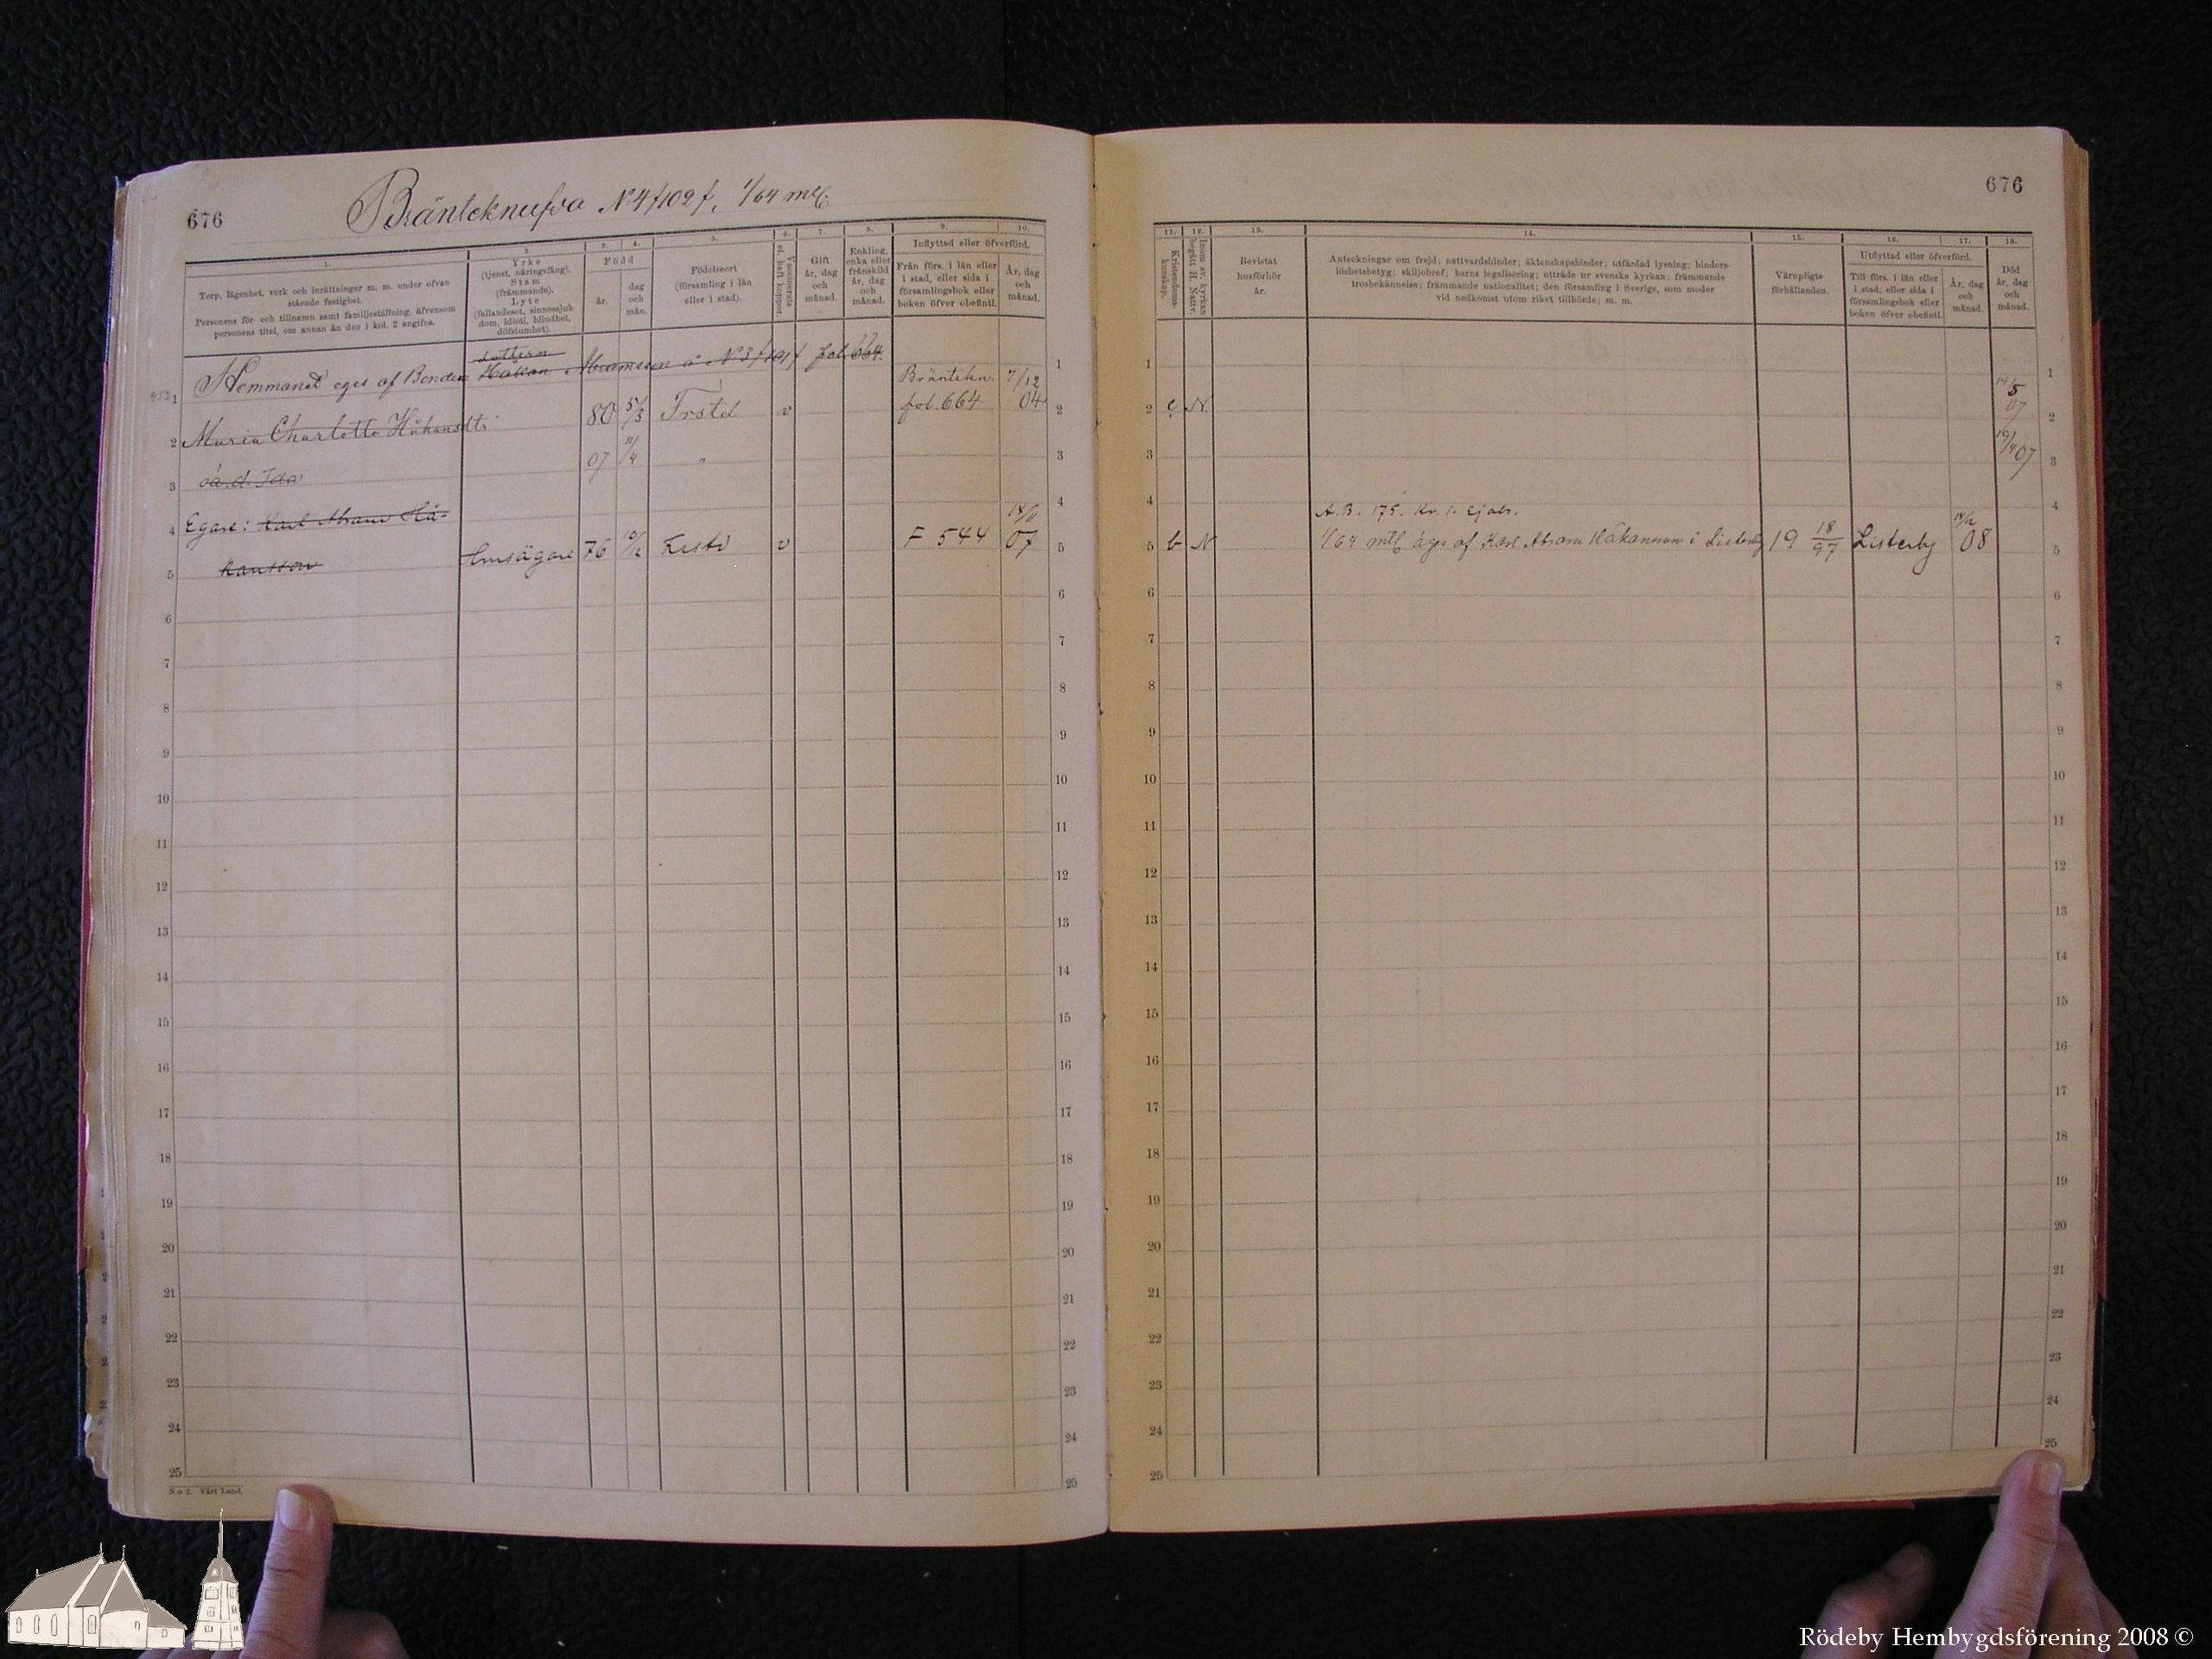 676
Bränteknufva N 4 f 102 f, 1/64 mtl.
1. 2. 3. 4. 5. 6. 7. 8. 9. 10.
Torp, lägenhet, verk och inrättningar m. m. under ofvan-
stående fastighet.
Personens för- och tillnamn samt familjeställning, äfvensom
personens titel, om annan än den i kol. 2 angifna.
Yrke
(tjenst, näringsfång).
Stam
(främmande).
Lyte
(fallandesot, sinnessjuk-
dom, idioti, blindhet,
döfstumhet).
Född
år.
dag
och
mån.
Födelseort
(församling i län
eller i stad).
Vaccinerats
el. haft koppor.
Gift
år, dag
och
månad.
Enkling,
enka eller
frånskild
år, dag
och
månad.
Inflyttad eller öfverförd.
Från förs. i län eller
i stad, eller sida i
församlingsbok eller
boken öfver obefintl.
År, dag
och
månad.
Hemmanet eges af Bonden Håkan Abramsson å N 3 f 101 f fol. 664.
dottern
Maria Charlotta Håkansdtr 80 5/3 Frstd v Bräntekn. fol. 664 7/12 04
oä. d. Ida 07 11/4 "
Egare: Karl Abram Hå-
kansson Husägare 76 v F 544 07
1 2 3 4 5 6 7 8 9 10 11 12 13 14 15 16 17 18 19 20 21 22 23 24 25
No 2. Vårt Land.
676
11. 12. 13. 14. 15. 16. 17. 18.
Kristendoms-
kunskap.
Inom sv. kyrkan
begått H. Nattv.
Bevistat
husförhör
år.
Anteckningar om frejd; nattvardshinder; äktenskapshinder; utfärdad lysning; hinders-
löshetsbetyg; skiljobref; barns legalisering; utträde ur svenska kyrkan; främmande
trosbekännelse; främmande nationalitet; den församling i Sverige, som moder
vid nedkomst utom riket tillhörde; m. m.
Värnpligts-
förhållanden.
Utflyttad eller öfverförd.
Till förs. i län eller
i stad, eller sida i
församlingsbok eller
boken öfver obefintl.
År, dag
och
månad.
Död
år, dag
och
månad.
c N 07
07
A. B. 175.
b N 1/64 mtl äges af Karl Abram Håkansson i Listerby 19 18/97 Listerby 08
1 2 3 4 5 6 7 8 9 10 11 12 13 14 15 16 17 18 19 20 21 22 23 24 25
Rödeby Hembygdsförening 2008 ©